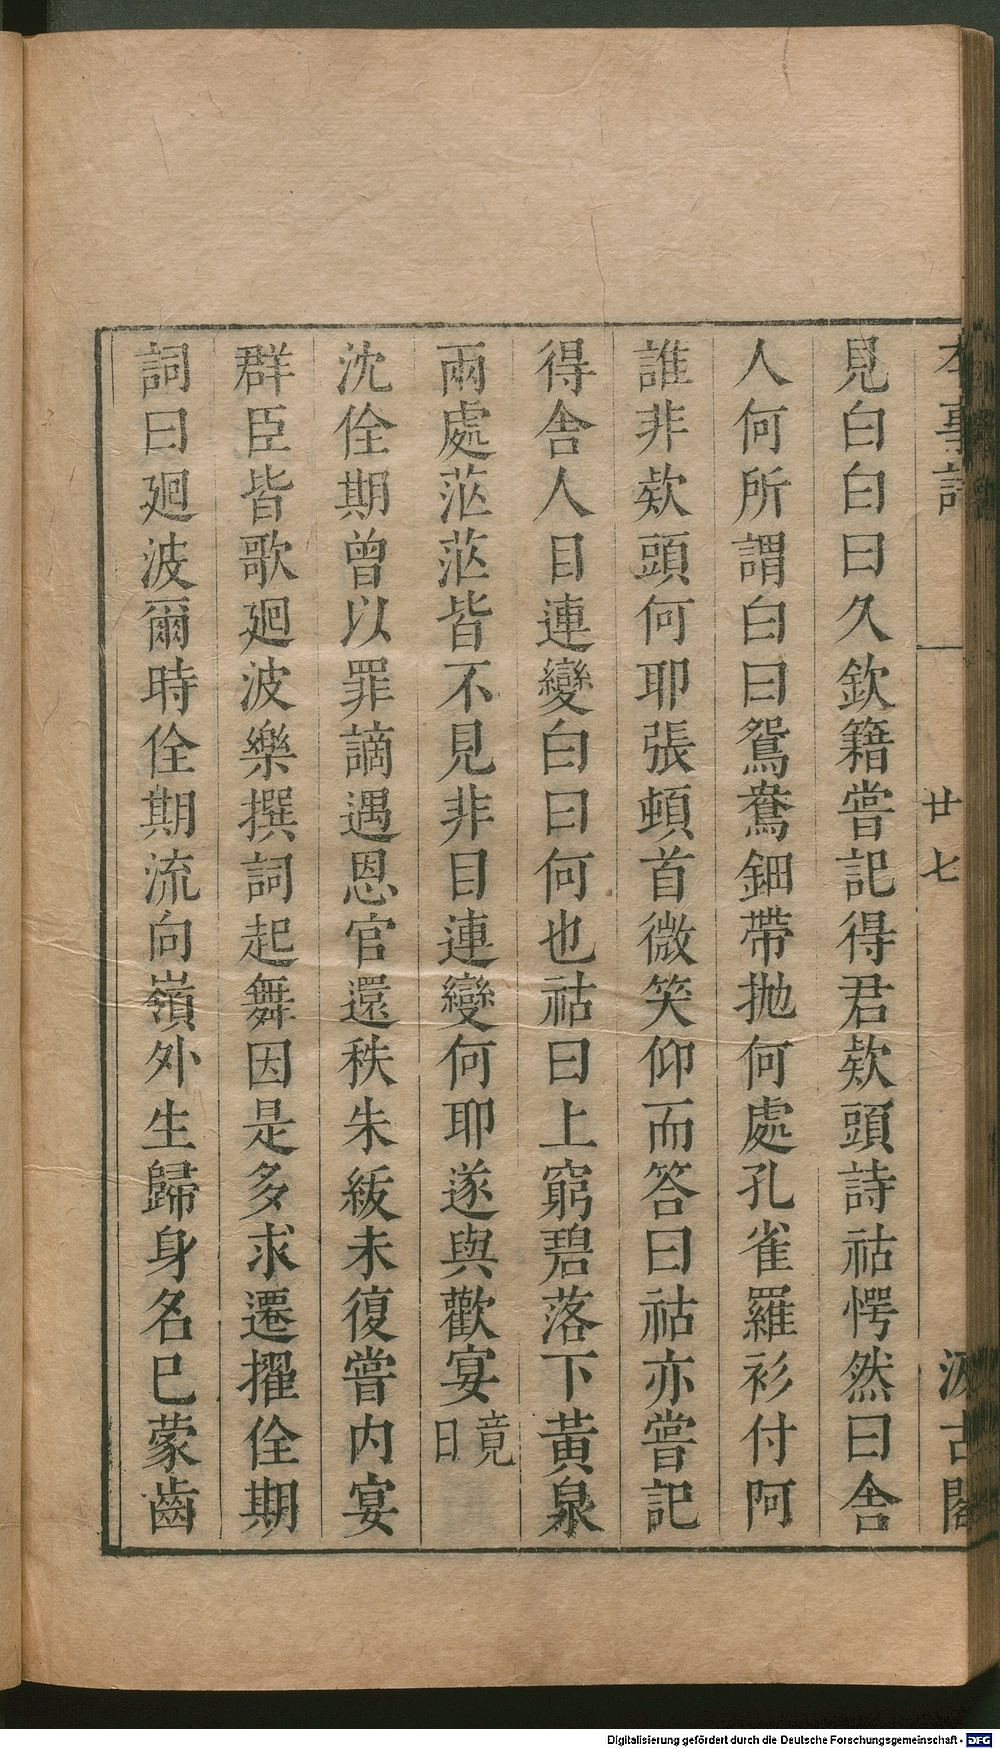 本事詩 一 廿七 汲古閣
見白白曰久欽籍嘗記得君欵頭詩祜愕然曰舍
人何所謂白曰鴛鴦鈿帶抛何處孔雀羅衫付阿
誰非欵頭何耶張頓首微笑仰而答曰祜亦嘗記
得舍人目連變白曰何也祜曰上窮碧落下黃泉
兩處茫茫皆不見非目連變何耶遂與歡宴竟日
沈佺期曾以罪謫遇恩官還秩朱紱未復嘗内宴
群臣皆歌廻波樂撰詞起舞因是多求遷擢佺期
詞曰廻波爾時佺期流向嶺外生歸身名已蒙齒
Digitalisierung gefördert durch die Deutsche Forschungsgemeinschaft - DFG